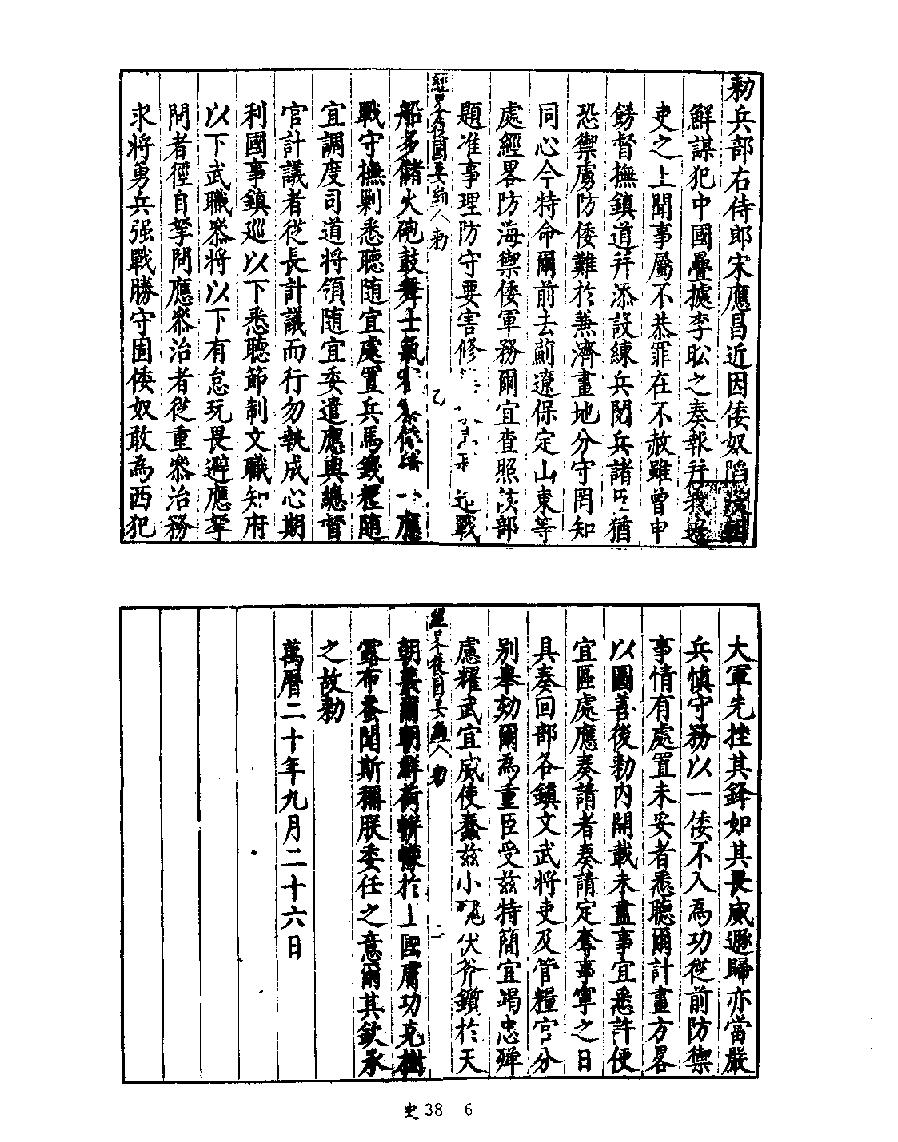 勅兵部右侍郎宋應昌近因倭奴陷
鮮謀犯中國疊據李昖之奏報幷我
吏之上聞事屬不恭罪在不赦雖曾申
飭督撫鎮道幷添設練兵閱兵諸臣猶
恐禦虜防倭難於兼濟畫地分守罔知
同心今特命爾前去薊遼保定山東等
處經畧防海禦倭軍務爾宜查照該部
題准事理防守要害修
戰
經畧復國要編 勅
船多儲火砲鼓舞士氣
應
戰守撫剿悉聽隨宜處置兵馬錢糧隨
宜調度司道將領隨宜委遣應與總督
官計議者從長計議而行勿執成心期
利國事鎮巡以下悉聽節制文職知府
以下武職叅將以下有怠玩畏避應拏
問者徑自拏問應叅治者從重叅治務
求將勇兵强戰勝守固倭奴敢為西犯
大軍先挫其鋒如其畏威遯歸亦當嚴
兵慎守務以一倭不入為功從前防禦
事情有處置未妥者悉聽爾計畫方畧
以圖善後勅內開載未盡事宜悉許便
宜區處應奏請者奏請定奪事寧之日
具奏回部各鎮文武將吏及管糧官分
別舉劾爾為重臣受茲特簡宜竭忠殫
慮耀武宣威使蠢茲小醜伏斧鑕於天
經畧復國要編 勅 二
朝
爾朝鮮荷帡幪於上國膚功克
露布蚤聞斯稱朕委任之意爾其欽承
之故勅
萬曆二十年九月二十六日
史 38 6